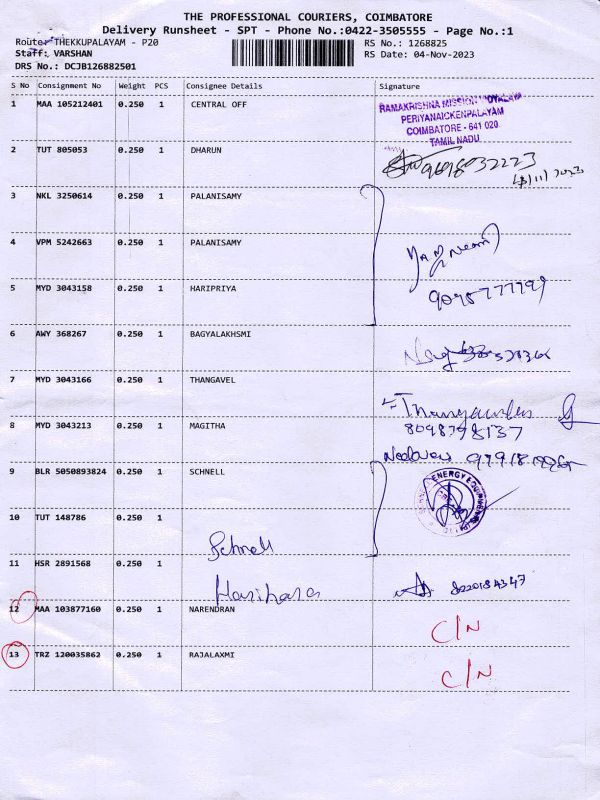 THE PROFESSIONAL COURIERS, COIMBATORE
Delivery Runsheet - SPT - Phone No.:0422-3505555 - Page No.:1
Router THEKKUPALAYAM - P20
RS No.: 1268825
Staff: VARSHAN
RS Date: 04-Nov-2023
DRS No.: DCJB126882501
S No Consignment No Weight PCS Consignee Details Signature
1 MAA 105212401 0.250 1 CENTRAL OFF
RAMAKRISHNA MISSION VIDYALAYA
PERIYANAICKENPALAYAM
COIMBATORE - 641 020
TAMIL NADU
2 TUT 805053 0.250 1 DHARUN
3 NKL 3250614 0.250 1 PALANISAMY
4 VPM 5242663 0.250 1 PALANISAMY
5 MYD 3043158 0.250 1 HARIPRIYA
6 AWY 368267 0.250 1 BAGYALAKHSMI
7 MYD 3043166 0.250 1 THANGAVEL
8 MYD 3043213 0.250 1 MAGITHA
8098798137
9 BLR 5050893824 0.250 1 SCHNELL
10 TUT 148786 0.250 1
Schnell
11 HSR 2891568 0.250 1 Hariharan 8220184347
12 MAA 103877160 0.250 1 NARENDRAN C/N
13 TRZ 120035862 0.250 1 RAJALAXMI C/N